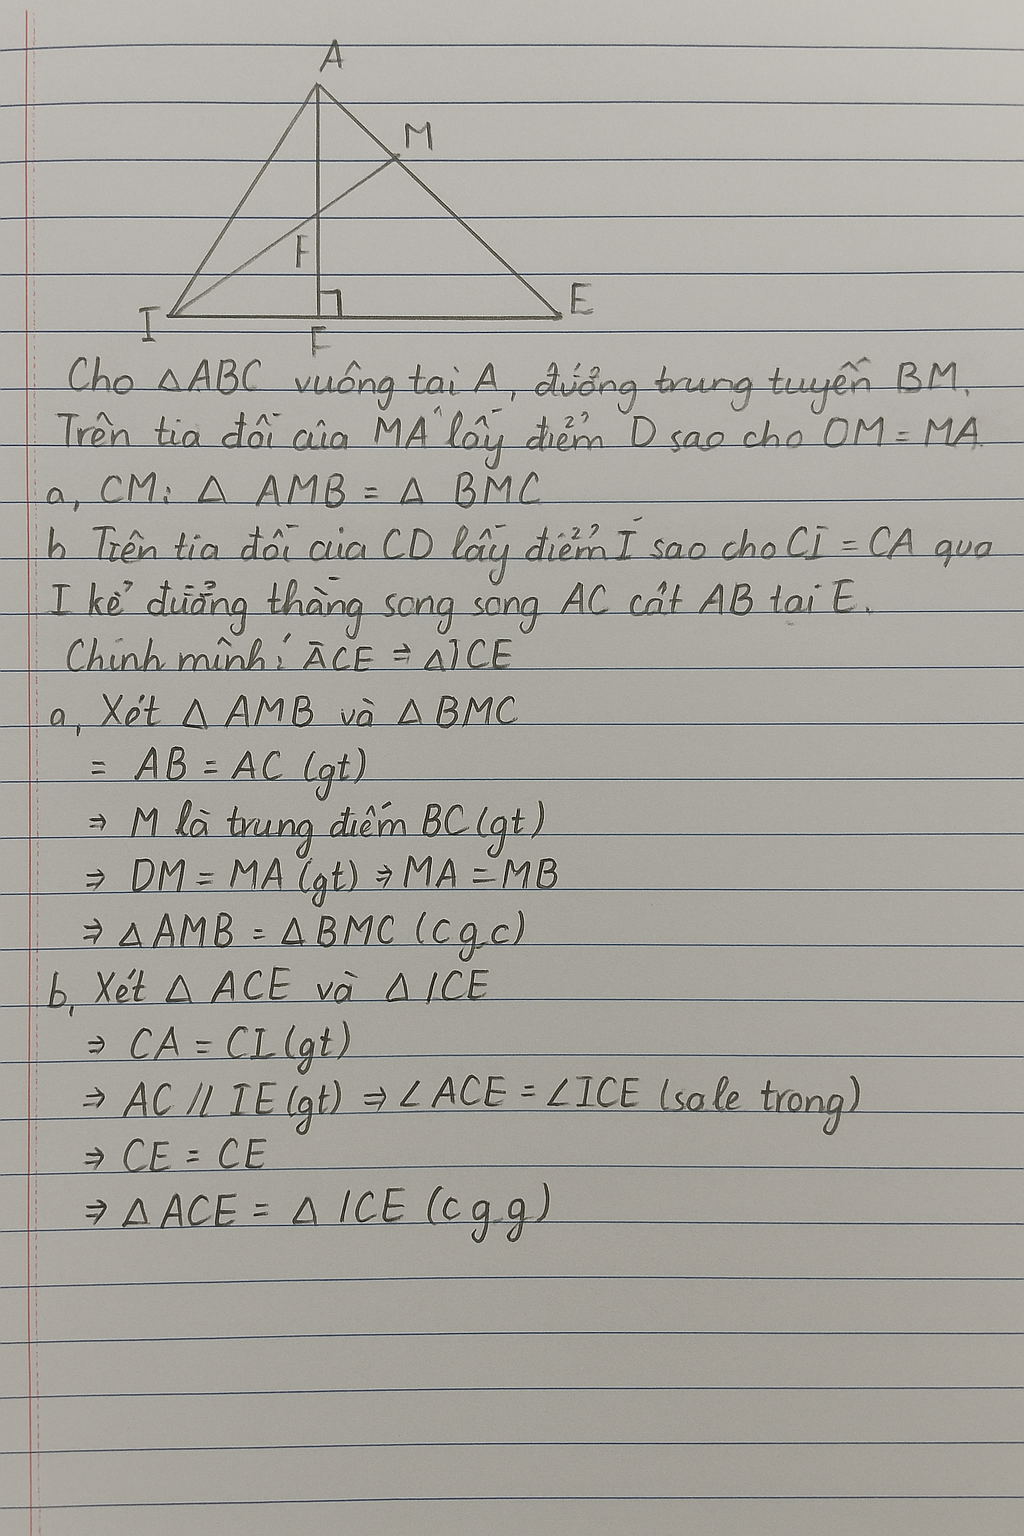 A
M
F
I
E
F
Cho △ABC vuông tại A, đường trung tuyến BM.
Trên tia đối của MA lấy điểm D sao cho OM = MA
a, CM: △ AMB = △ BMC
b Trên tia đối của CD lấy điểm I sao cho CI = CA qua
I kẻ đường thẳng song song AC cắt AB tại E.
Chính mình: ACE ⇒ △ICE
a, Xét △ AMB và △ BMC
= AB = AC (gt)
⇒ M là trung điểm BC (gt)
⇒ DM = MA (gt) ⇒ MA = MB
⇒ △AMB = △BMC (c g.c)
b, Xét △ ACE và △ ICE
⇒ CA = CI (gt)
⇒ AC // IE (gt) ⇒ ∠ACE = ∠ICE (sole trong)
⇒ CE = CE
⇒ △ ACE = △ ICE (c g.g)